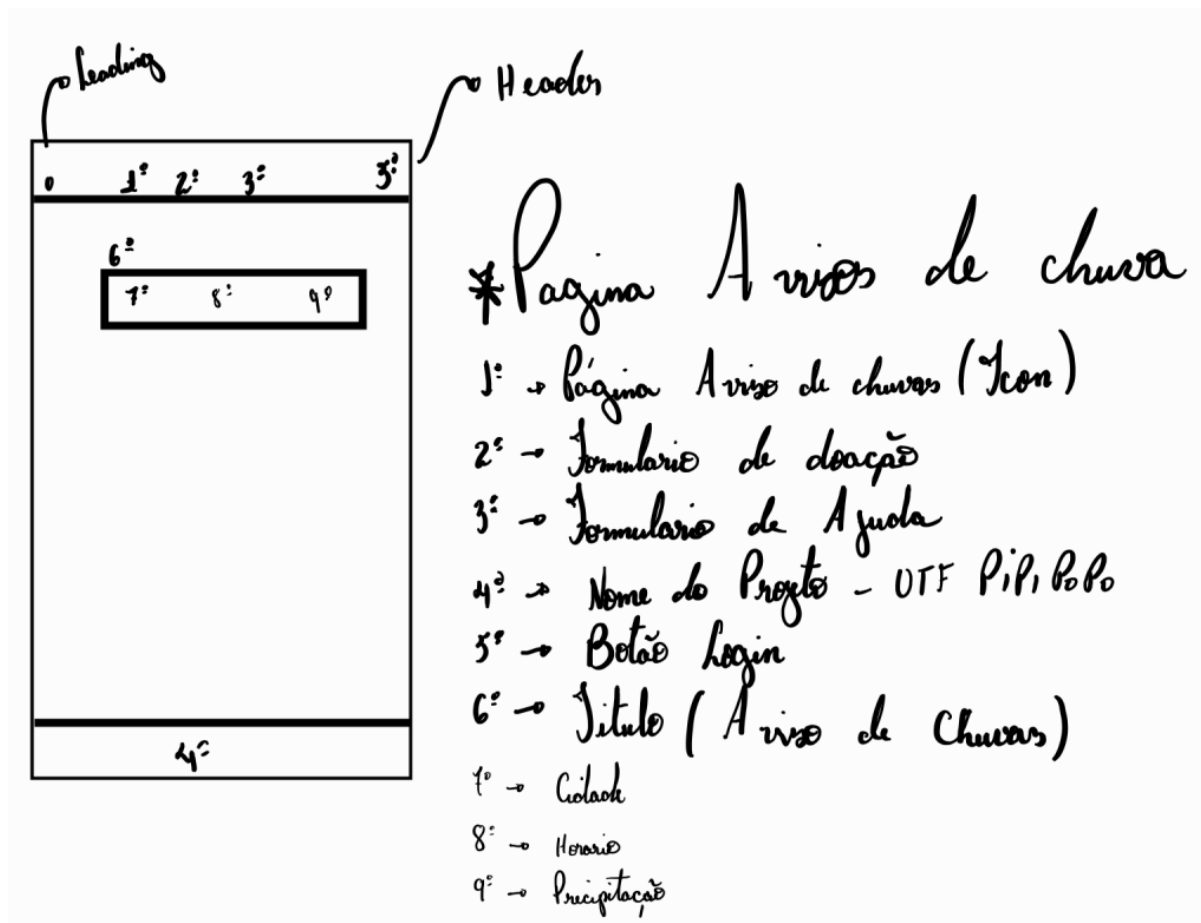 Leading
Header
0 1º 2º 3º 5º
6º
7º 8º 9º
4º
*Pagina Avisos de chuva
1º → Página Aviso de chuvas (Icon)
2º → Formulario de doação
3º → Formulario de Ajuda
4º → Nome do Projeto - UTF PiPi PoPo
5º → Botão Login
6º → Titulo (Aviso de Chuvas)
7º → Cidade
8º → Horario
9º → Precipitação